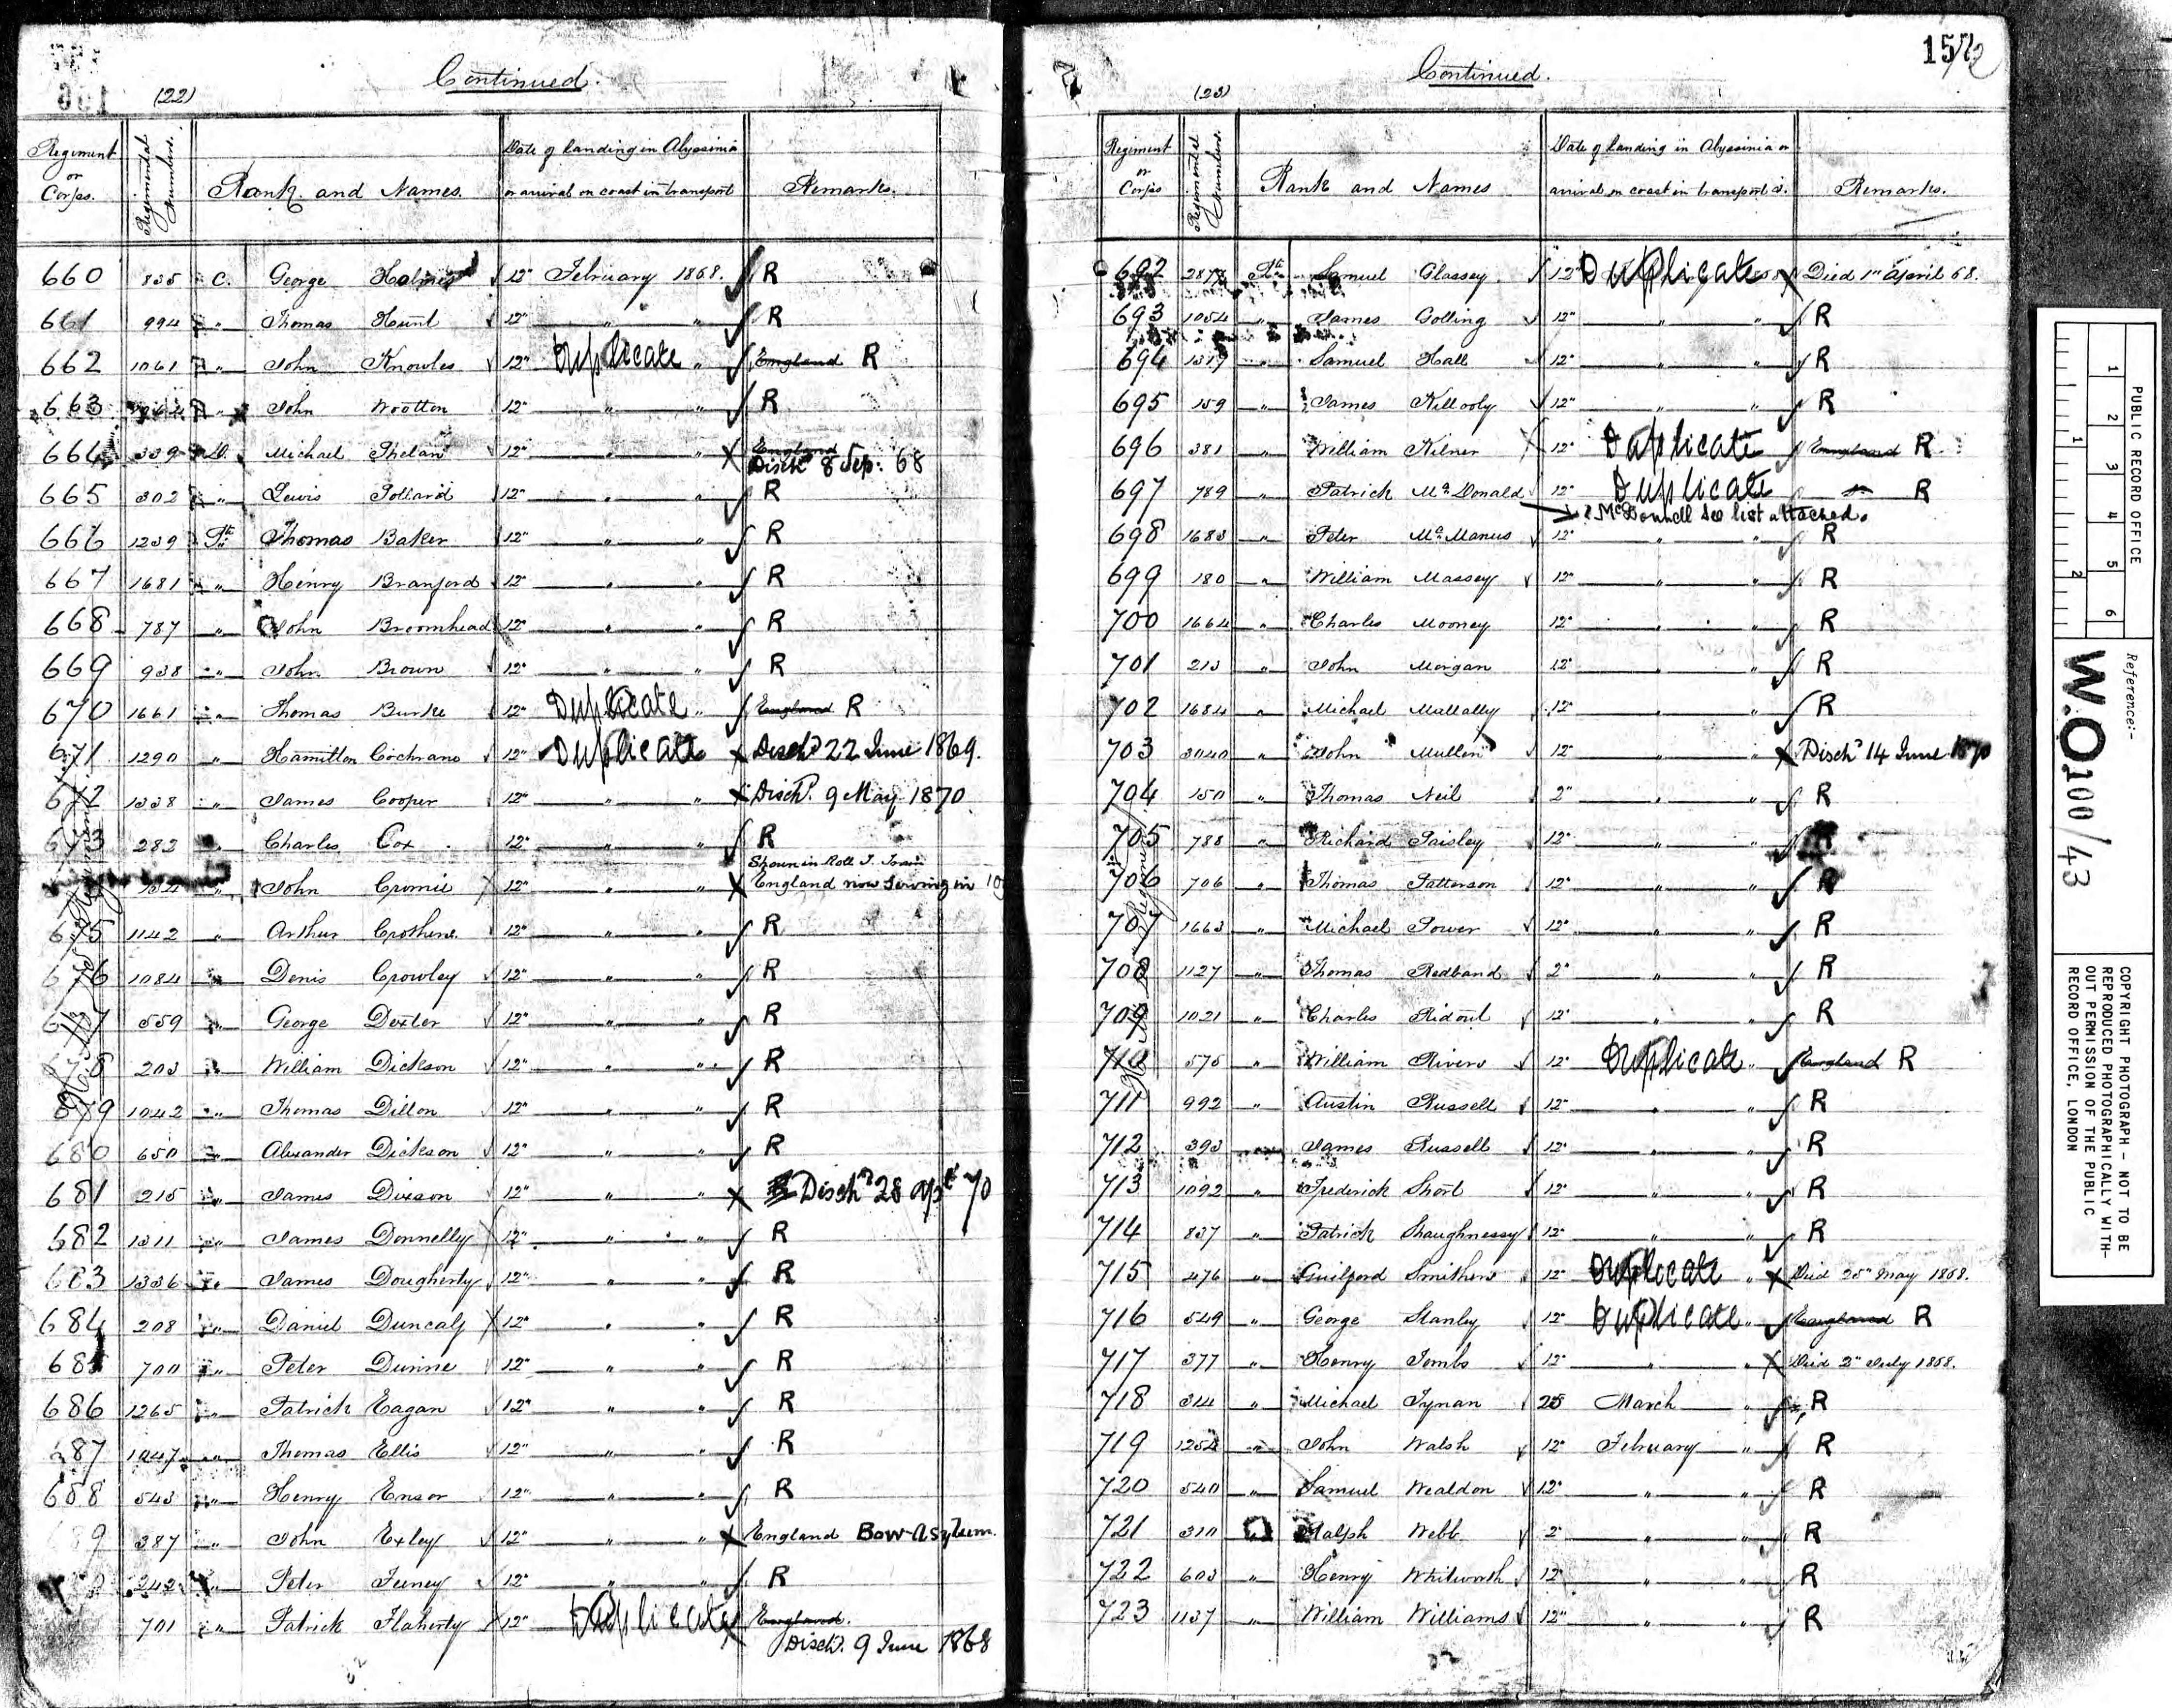 (22)
Continued.
Regiment or Corps. Regimental Number. Rank and Names. Date of landing in Abyssinia or arrival on coast in transport Remarks.
660 835 C. George Holmes 12" February 1868. R
661 994 " Thomas Hunt 12" " " R
662 1061 " John Knowles 12" Duplicate " England R
663 John Wootton 12" " " R
664 339 D. Michael Phelan 12" " " England
Disch 8 Sep: 68
665 302 " Lewis Pollard 12" " " R
666 1239 Pte Thomas Baker 12" " " R
667 1681 " Henry Branford 12" " " R
668 787 " John Broomhead 12" " " R
669 938 " John Brown 12" " " R
670 1661 " Thomas Burke 12" Duplicate " England R
671 1290 " Hamilton Cochrane 12" Duplicate Dischd 22 June 1869.
672 1338 " James Cooper 12" " " Dischd. 9 May 1870
673 283 " Charles Cox 12" " " R
Shown in Roll T. Train
134 " John Cromie 12" " " England now serving in 10
675 1142 " Arthur Crothers 12" " " R
676 1084 " Denis Crowley 12" " " R
677 559 " George Dexter 12" " " R
678 203 " William Dickson 12" " " R
679 1042 " Thomas Dillon 12" " " R
680 650 " Alexander Dickson 12" " " R
681 215 " James Dixson 12" " " Dischd 28 apl 70
682 1311 " James Donnelly 12" " " R
683 1336 " James Dougherty 12" " " R
684 208 " Daniel Duncalf 12" " " R
685 700 " Peter Dunne 12" " " R
686 1265 " Patrick Eagan 12" " " R
687 1047 " Thomas Ellis 12" " " R
688 543 " Henry Ensor 12" " " R
89 387 " John Exley 12" " " England Bow Asylum.
242 " Peter Feeney 12" " " R
701 " Patrick Flaherty 12" Duplicate England.
Dischd. 9 June 1868
157
(23)
Continued.
Regiment or Corps Regimental Number. Rank and Names Date of landing in Abyssinia or arrival on coast in transports. Remarks.
692 Pte Samuel Glassey 12" Duplicate Died 1st April 68.
693 1054 " James Golling 12" " " R
694 1319 " Samuel Hall 12" " " R
695 159 " James Killooly 12" " " R
696 381 " William Kilner 12" Duplicate England R
697 789 " Patrick McDonald 12" Duplicate " R
? McDonnell see list attached.
698 1683 " Peter McManus 12" " " R
699 180 " William Massey 12" " " R
700 1664 " Charles Mooney 12" " " R
701 213 " John Morgan 12" " " R
702 1684 " Michael Mullally 12" " " R
703 3040 " John Mullen 12" " " Dischd 14 June 1870
704 150 " Thomas Neil 2" " " R
705 788 " Richard Paisley 12" " " R
706 706 " Thomas Patterson 12" " " R
707 1663 " Michael Power 12" " " R
708 1127 " Thomas Redband 2" " " R
709 1021 " Charles Ridout 12" " " R
710 575 " William Rivers 12" Duplicate " England R
711 992 " Austin Russell 12" " " R
712 393 " James Russell 12" " " R
713 1092 " Frederick Short 12" " " R
714 837 " Patrick Shaughnessy 12" " " R
715 476 " Guilford Smithers 12" Duplicate " Died 25th May 1868.
716 549 " George Stanley 12" Duplicate " England R
717 377 " Henry Tombs 12" " " Died 2nd July 1868.
718 314 " Michael Tynan 25 March " R
719 1254 " John Walsh 12" February " R
720 540 " Samuel Wealdon 12" " " R
721 310 Ralph Webb 2" " " R
722 603 " Henry Whitworth 12" " " R
723 1137 " William Williams 12" " " R
PUBLIC RECORD OFFICE
1 2 3 4 5 6
1 2
Reference:-
W.O. 100/43
COPYRIGHT PHOTOGRAPH - NOT TO BE
REPRODUCED PHOTOGRAPHICALLY WITH-
OUT PERMISSION OF THE PUBLIC
RECORD OFFICE, LONDON